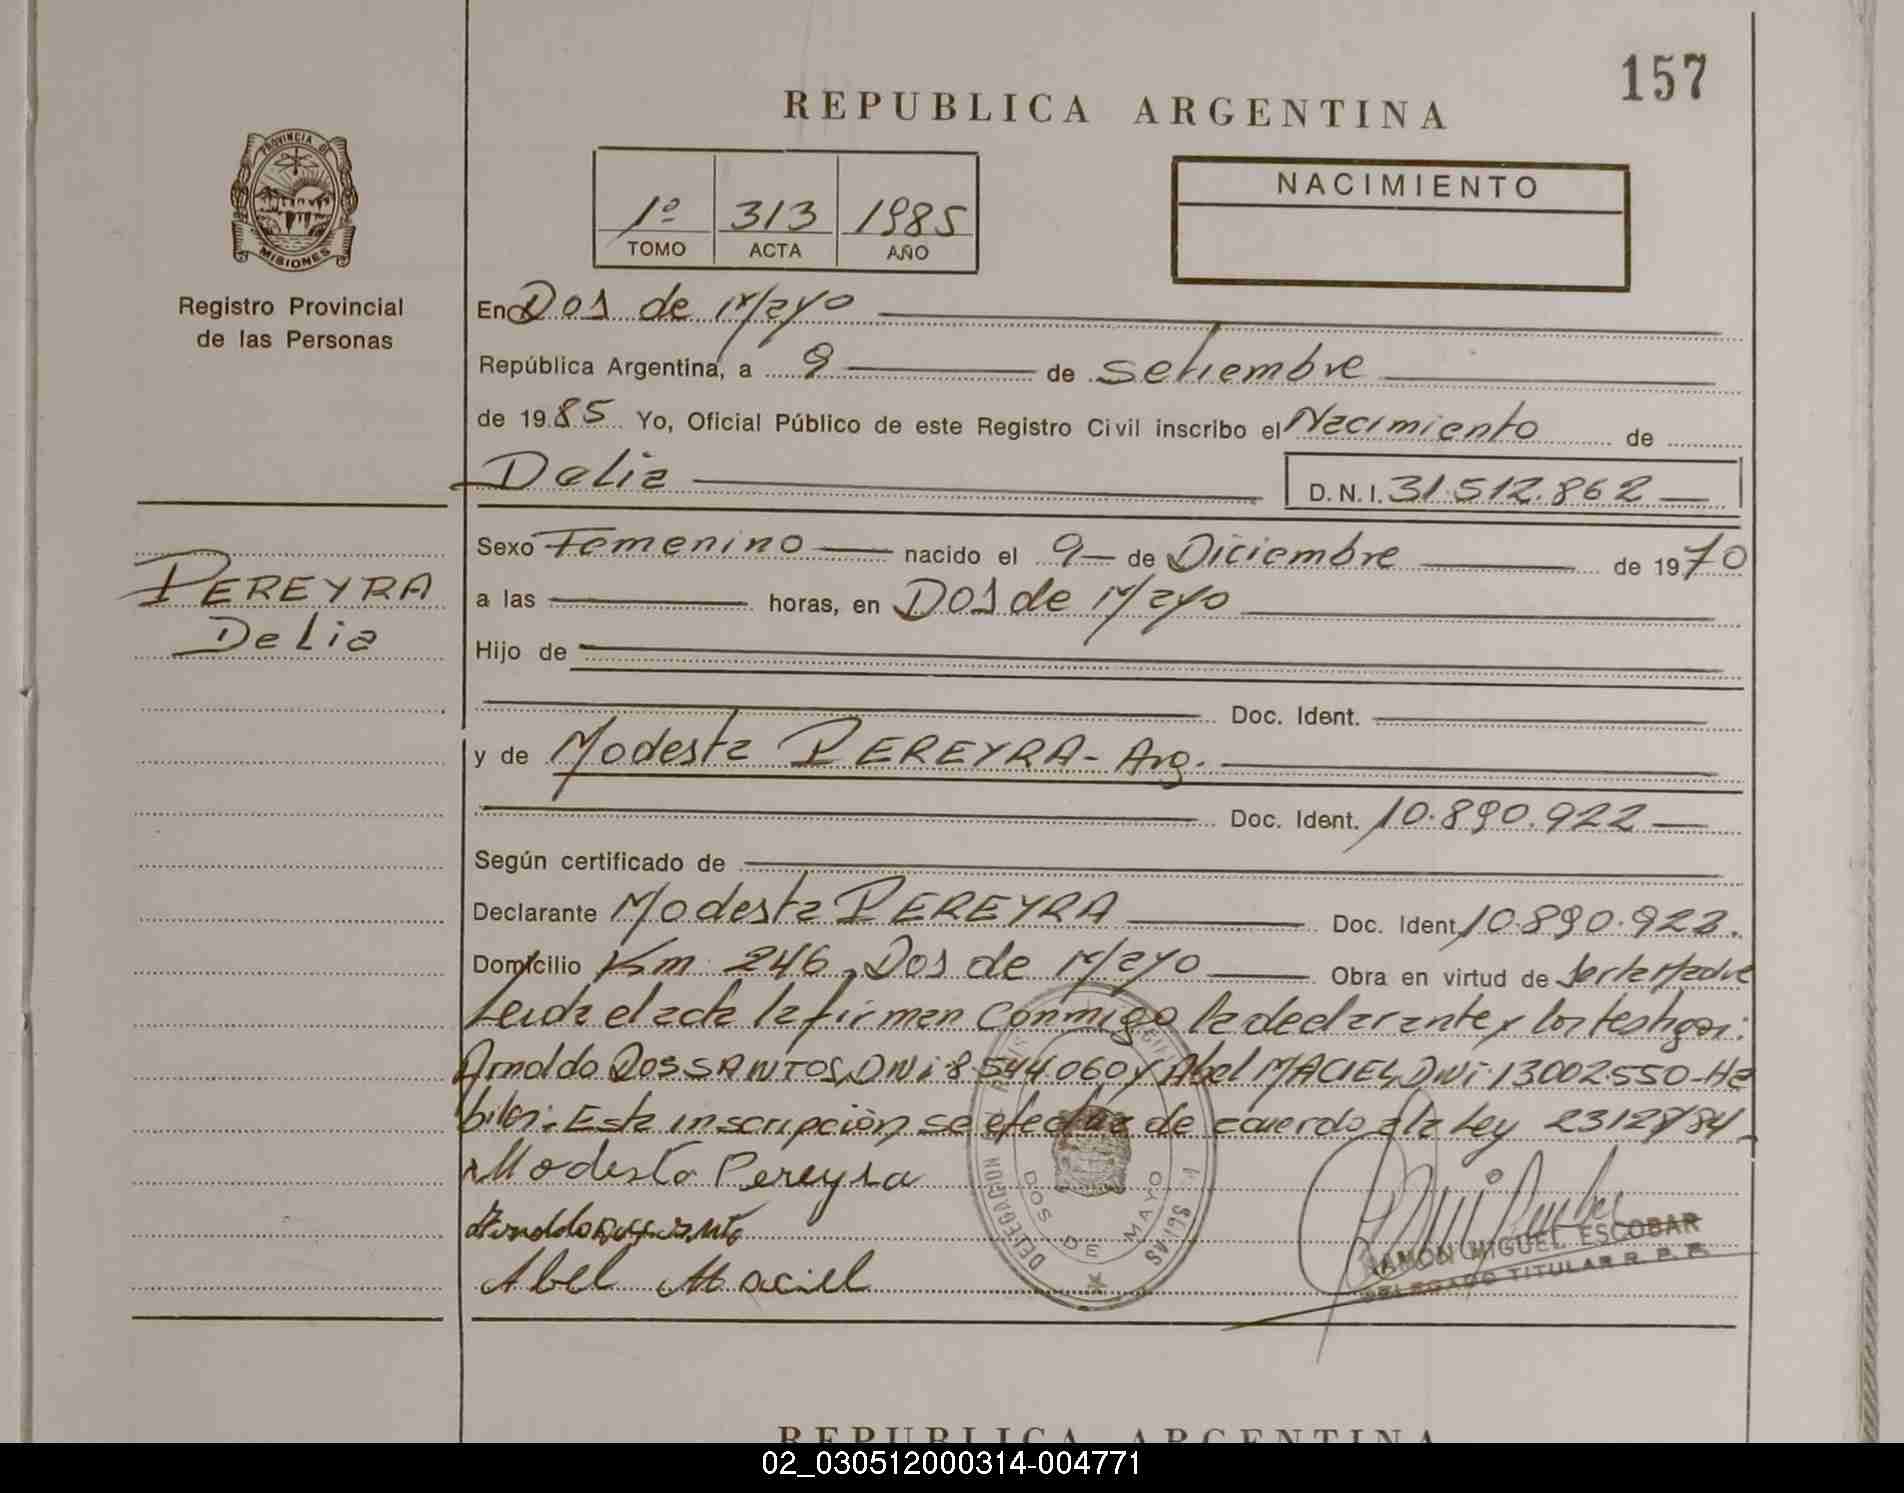 157
REPUBLICA ARGENTINA
PROVINCIA DE
MISIONES
Registro Provincial
de las Personas
1º 313 1985
TOMO ACTA AÑO
NACIMIENTO
En Dos de Mayo
República Argentina, a 9 de setiembre
de 1985 Yo, Oficial Público de este Registro Civil inscribo el Nacimiento de
Delia D.N.I. 31.512.862
PEREYRA
Delia
Sexo Femenino nacido el 9 de Diciembre de 1970
a las horas, en Dos de Mayo
Hijo de
Doc. Ident.
y de Modesta PEREYRA - Arg.
Doc. Ident. 10.890.922
Según certificado de
Declarante Modesta PEREYRA Doc. Ident. 10.890.922.
Domicilio Km 246, Dos de Mayo Obra en virtud de ser la Madre
Leida el acta la firman conmigo la declarante y los testigos:
Arnoldo DOS SANTOS, DNi 8.544.060 y Abel MACIEL, DNi 13002.550 - Há
biles. Esta inscripción se efectúa de acuerdo a la Ley 23128/84
Modesta Pereyra
Abel Maciel
DELEGACION
DOS DE MAYO
RAMON MIGUEL ESCOBAR
DELEGADO TITULAR R. P. P.
REPUBLICA ARGENTINA
02_030512000314-004771